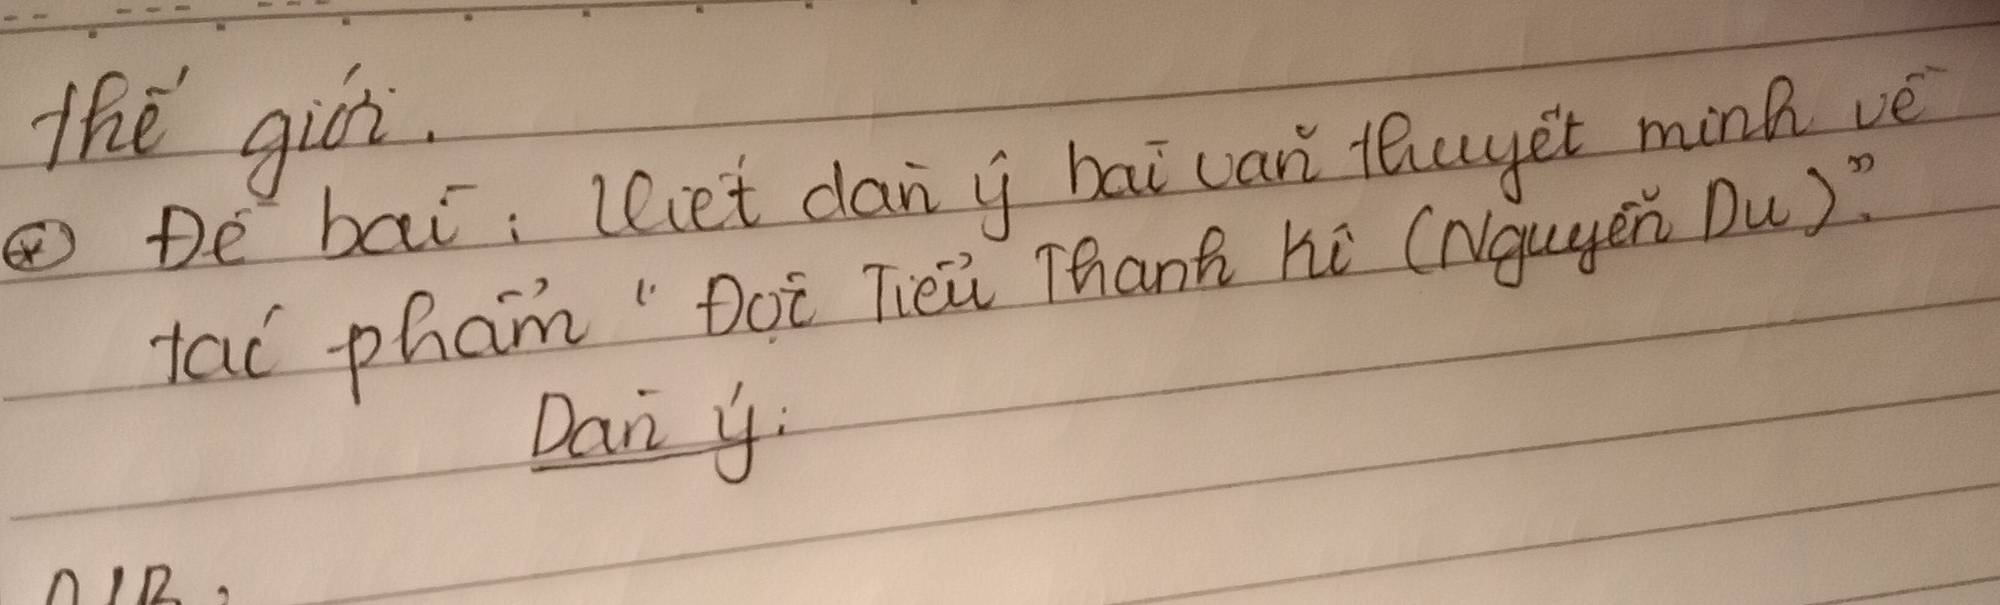 thế giới.
⊛ Đề bài: Viết dàn ý bài văn thuyết minh về
tác phẩm "Đọc Tiểu Thanh kí (Nguyễn Du)".
Dàn ý: